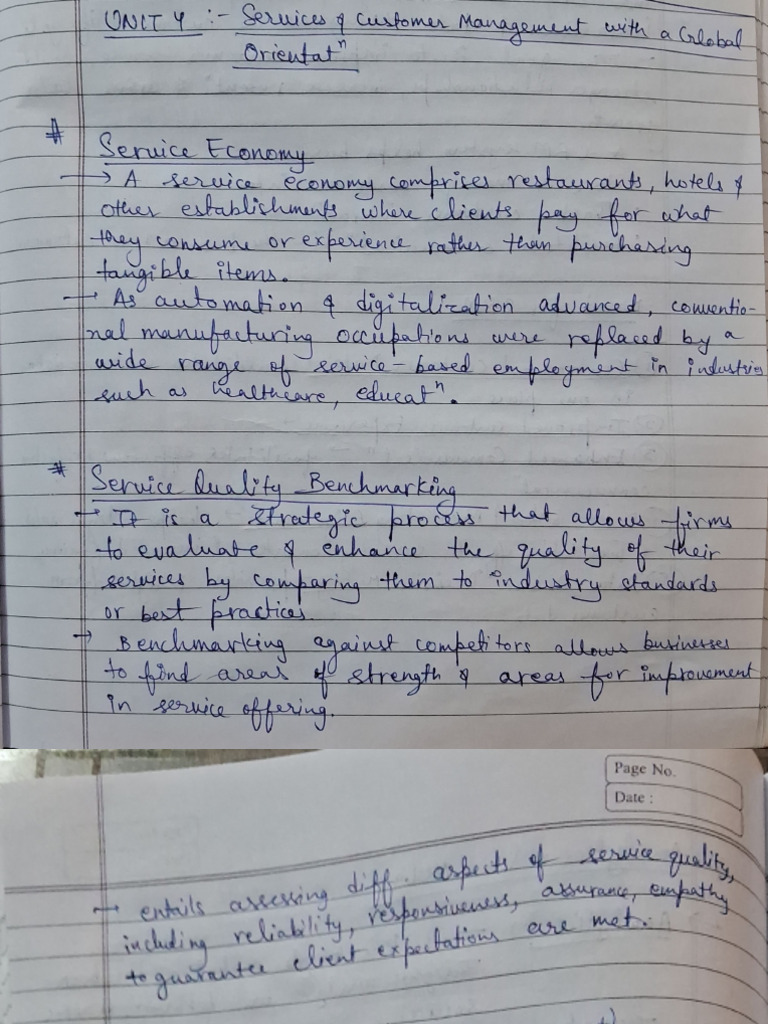 UNIT 4 :- Services & Customer Management with a Global
Orientatⁿ
# Service Economy
→ A service economy comprises restaurants, hotels &
other establishments where clients pay for what
they consume or experience rather than purchasing
tangible items.
→ As automation & digitalization advanced, conventio-
nal manufacturing occupations were replaced by a
wide range of service-based employment in industries
such as healthcare, educatⁿ.
# Service Quality Benchmarking
→ It is a strategic process that allows firms
to evaluate & enhance the quality of their
services by comparing them to industry standards
or best practices.
→ Benchmarking against competitors allows businesses
to find areas of strength & areas for improvement
in service offering.
Page No.
Date :
→ entails assessing diff. aspects of service quality,
including reliability, responsiveness, assurance, empathy
to guarantee client expectations are met.